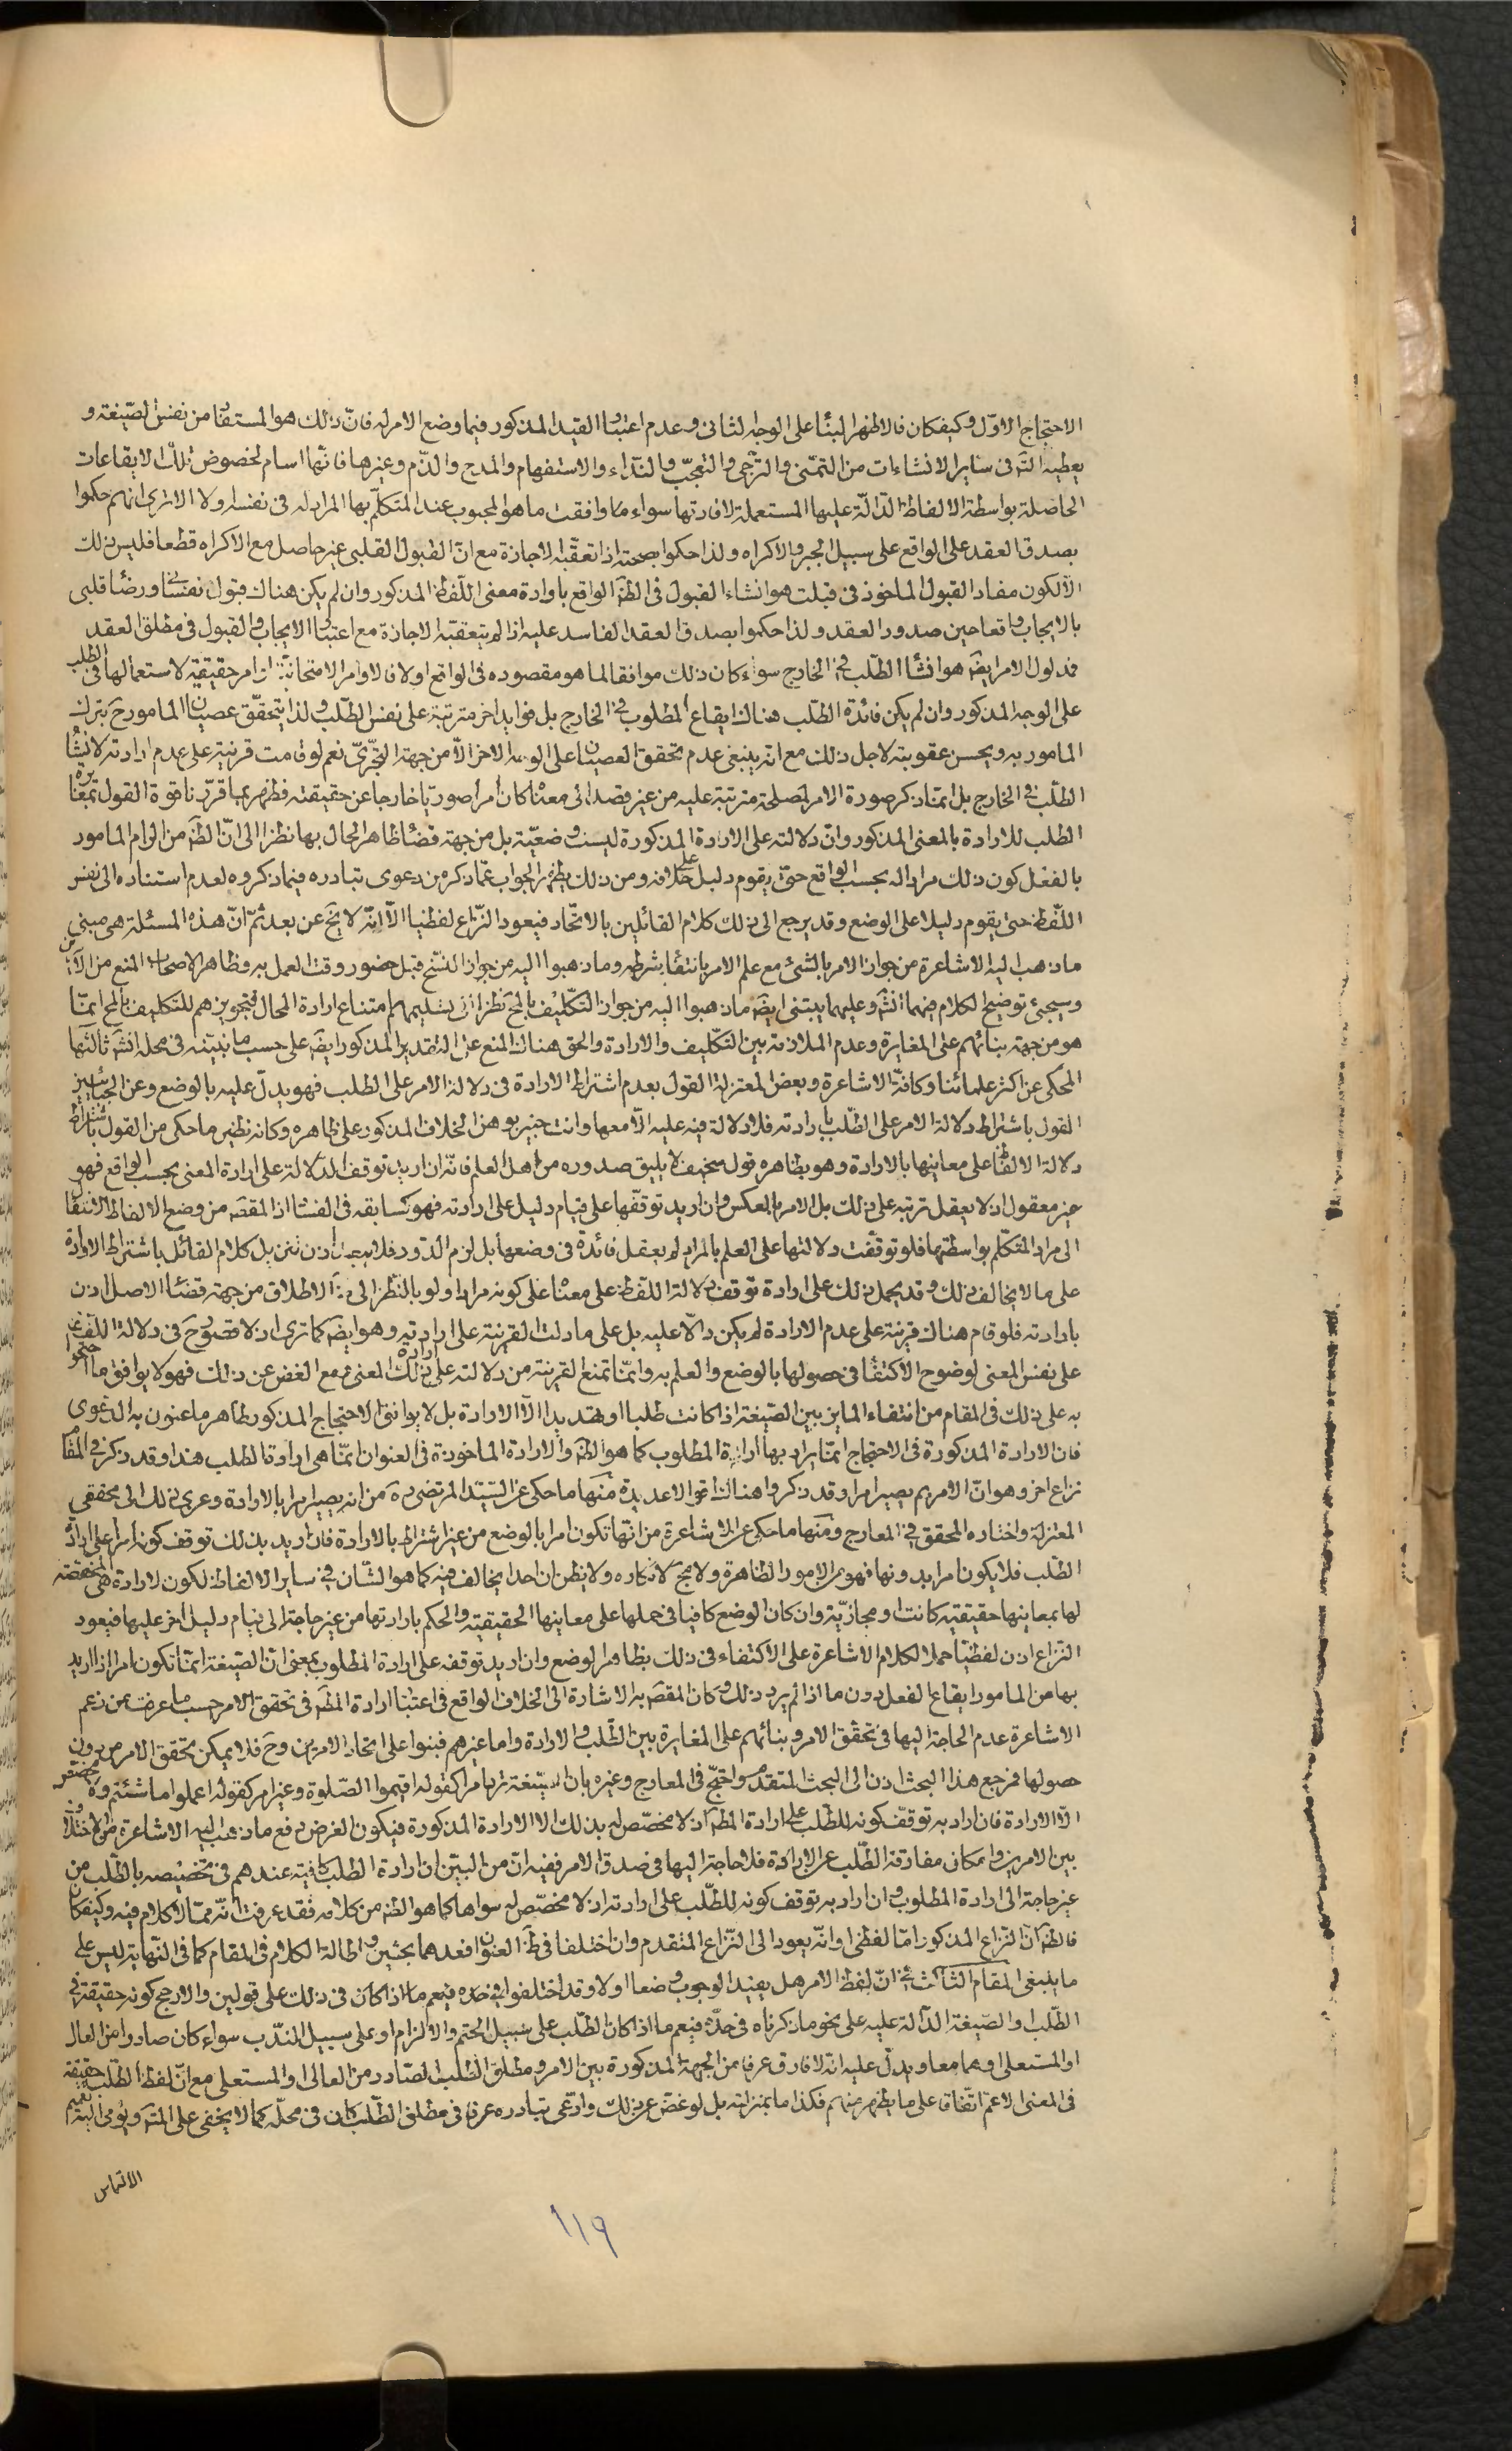 الاحتجاج الاوّل وكيفكان فالاظهر البناء على الوجه الثانى وعدم اعتبار القيد المذكور فيما وضع الامر له فانّ ذلك هو المستفاد من نفس الصّيغة و
يعطيه التّم فى سائر الانشاءات من التمنّى والترّجى والتعجّب والنّداء والاستفهام والمدح والذّم وغيرها فانّها اسام لخصوص تلك الايقاعات
الحاصلة بواسطة الالفاظ الدّالّة عليها المستعملة لافادتها سواء وافقت ما هو المحبوب عند المتكلّم بها المراد له فى نفسه اولا الا ترى انهم حكموا
بصدق العقد على الواقع على سبيل الجبر والاكراه ولذا حكموا بصحته اذا تعقّبه الاجازة مع انّ القبول القلبى غير حاصل مع الاكراه قطعا فليس ذلك
الّا لكون مفاد القبول الماخوذ فى قبلت هو انشاء القبول فى الظّ الواقع بارادة معنى اللّفظ المذكور وان لم يكن هناك قبول نفسانى ورضا قلبى
بالايجاب واقعا حين صدور العقد ولذا حكموا بصدق العقد الفاسد عليه اذا لم يتعقبه الاجازة مع اعتبار الايجاب والقبول فى مطلق العقد
فمدلول الامر ايضا هو انشاء الطّلب فى الخارج سواء كان ذلك موافقا لما هو مقصوده فى الواقع اولا فالاوامر الامتحانيّة اوامر حقيقية لاستعمالها فى الطلب
على الوجه المذكور وان لم يكن فائدة الطّلب هناك ايقاع المطلوب فى الخارج بل فوايد اخر مترتبة على نفس الطّلب ولذا يتحقّق عصيان المامور ح بترك
المامور به ويحسن عقوبته لاجل ذلك مع انه ينبغى عدم تحقق العصيان على الوجه الاخر الّا من جهة التّجرّى نعم لو قامت قرينة على عدم ارادته لانشاء
الطّلب فى الخارج بل انمّا ذكر صورة الامر لمصلحة مترتبة عليه من غير قصد الى معناه كان امرا صوريّا خارجا عن حقيقته فظهر بما قرّرنا قوة القول بمغايرة
الطلب للارادة بالمعنى المذكور وانّ دلالته على الارادة المذكورة ليست وضعيّة بل من جهة قضاء ظاهر الحال بها نظرا الى انّ الظّ من الزام المامور
بالفعل كون ذلك مرادا له بحسب الواقع حتّى يقوم دليل على خلافه ومن ذلك يظهر الجواب عمّا ذكره من دعوى تبادره فيما ذكروه لعدم استناده الى نفس
اللّفظ حتى يقوم دليلا على الوضع وقد يرجع الى ذلك كلام القائلين بالاتّحاد فيعود النّزاع لفظيا الّا انّه لا يخ عن بعد ثمّ انّ هذه المسئلة هى مبنى
ما ذهب اليه الاشاعرة من جواز الامر بالشئ مع علم الامر بانتفاء شرطه وما ذهبوا اليه من جواز النّسخ قبل حضور وقت العمل به وظاهر الاصحاب المنع من الامرين
وسيجئ توضيح الكلام فيهما انشَ وعليهما يبتنى ايضا ما ذهبوا اليه من جواز التكليف بالمح نظرا الى تسليمهم امتناع ارادة المحال فتجويزهم للتّكليف بالمح انمّا
هو من جهة بنائهم على المغايرة وعدم الملازمة بين التّكليف والارادة والحق هناك المنع على التقدير المذكور ايضا على حسب ما نبيّنه فى محله انشَ ثالثها
المحكى عن اكثر علمائنا وكافّة الاشاعرة وبعض المعتزلة القول بعدم اشتراط الارادة فى دلالة الامر على الطلب فهو يدلّ عليه بالوضع وعن الجبائيين
القول باشتراط دلالة الامر على الطّلب بارادته فلا دلالة فيه عليه الّا معها وانت خبير بوهن الخلاف المذكور على ظاهره وكانه نظير ما حكى من القول باشتراط
دلالة الالفاظ على معانيها بالارادة وهو بظاهره قول سخيف لا يليق صدوره من اهل العلم فانّه ان اريد توقف الدّلالة على ارادة المعنى بحسب الواقع فهو
غير معقول اذ لا يعقل ترتبه على ذلك بل الامر بالعكس وان اريد توقّفها على قيام دليل على ارادته فهو كسابقه فى الفساد اذ المقصَ من وضع الالفاظ الانتقال
الى مراد المتكلّم بواسطتها فلو توقّفت دلالتها على العلم بالمراد لم يعقل فائدة فى وضعها بل لزم الدّور فلا يبعد اذن تنزيل كلام القائل باشتراط الارادة
على ما لا يخالف ذلك وقد يحمل ذلك على ارادة توقف دلالة اللّفظ على معناه على كونه مرادا ولو بالنّظر الى ظَ الاطلاق من جهة قضاء الاصل اذن
بارادته فلو قام هناك قرينة على عدم الارادة لم يكن دالّا عليه بل على ما دلت القرينة على ارادته وهو ايضا كما ترى اذ لا قصور ح فى دلالة اللّفظ
على نفس المعنى لوضوح الاكتفاء فى حصولها بالوضع والعلم به وانمّا تمنع القرينة من دلالته على ارادة ذلك المعنى مع الغض عن ذلك فهو لا يوافق ما احتجوا
به على ذلك فى المقام من انتفاء المايز بين الصّيغة اذا كانت طلبا او تهديدا الّا الارادة بل لا يوافق الاحتجاج المذكور ظاهر ما عنون به الدعوى
فان الارادة المذكورة فى الاحتجاج انمّا يراد بها ارادة المطلوب كما هو الظّ والارادة الماخوذة فى العنوان انمّا هى ارادة الطلب هذا وقد ذكر فى المقام
نزاع اخر وهو انّ الامر بم يصير امرا وقد ذكروا هناك اقوالا عديدة منها ما حكى عن السّيّد المرتضى رَه من انه يصير امرا بالارادة وعزى ذلك الى محققى
المعتزلة واختاره المحقق فى المعارج ومنها ما حكى عن الاشاعرة من انّها تكون امرا بالوضع من غير اشتراط بالارادة فان اريد بذلك توقف كونه امرا على ارادة
الطّلب فلا يكون امرا بدونها فهو من الامور الظاهرة ولا مجَ لانكاره ولا يظن ان احدا يخالف فيه كما هو الشّان فى ساير الالفاظ لكون الارادة هى المخصّصة
لها بمعانيها حقيقيّة كانت او مجازيّة وان كان الوضع كافيا فى حملها على معانيها الحقيقية والحكم بارادتها من غير حاجة الى قيام دليل اخر عليها فيعود
النّزاع اذن لفظيّا حملا لكلام الاشاعرة على الاكتفاء فى ذلك بظاهر الوضع وان اريد توقفه على ارادة المطلوب بمعنى انّ الصّيغة انمّا تكون امرا اذا اريد
بها من المامور ايقاع الفعل دون ما اذا لم يرد ذلك وكان المقصَ به الاشارة الى الخلاف الواقع فى اعتبار ارادة المطَ فى تحقق الامر حسب ما عرفت من زعم
الاشاعرة عدم الحاجة اليها فى تحقّق الامر وبنائهم على المغايرة بين الطّلب والارادة واما غيرهم فبنوا على اتحاد الامرين وح فلا يمكن تحقق الامر من دون
حصولها فمرجع هذا البحث اذن الى البحث المتقدم واحتجّ فى المعارج وغيره بان الصّيغة ترد امرا كقوله اقيموا الصّلوة وغير امر كقوله اعملوا ما شئتم ولا مخصّص
الّا الارادة فان اراد به توقّف كونه للطّلب على ارادة المطَ اذ لا مخصّص له بذلك الا الارادة المذكورة فيكون الغرض دفع ما ذهب اليه الاشاعرة من اختلاف
بين الامرين وامكان مفارقة الطّلب عن الارادة فلا حاجة اليها فى صدق الامر ففيه انّ من البيّن ان ارادة الطلب كافية عندهم فى تخصيصه بالطّلب من
غير حاجة الى ارادة المطلوب وان اراد به توقف كونه للطّلب على ارادته اذ لا مخصّص له سواها كما هو الظّ من كلامه فقد عرفت انّه ممّا لا كلام فيه وكيفكان
فالظّ انّ النّزاع المذكور امّا لفظى او انّه يعود الى النّزاع المتقدم وان اختلفا فى ظَ العنوان فعدهما بحثين واطالة الكلام فى المقام كما فى النّهاية ليس على
ما ينبغى المقام الثالث فى انّ لفظ الامر هل يفيد الوجوب وضعا اولا وقد اختلفوا فى خصوصه فيعم ما اذا كان فى ذلك على قولين والارجح كونه حقيقة فى
الطّلب او الصّيغة الدّالة عليه على نحو ما ذكرناه فى حدّه فيعم ما اذا كان الطّلب على سبيل الحتم والالزام او على سبيل النّدب سواء كان صادرا من العالى
او المستعلى او هما معا ويدلّ عليه انّه لا فارق عرفا من الجهة المذكورة بين الامر ومطلق الطّلب الصّادر من العالى او المستعلى مع انّ لفظ الطّلب حقيقة
فى المعنى الاعمّ اتّفاقا على ما يظهر منهم فكذا ما بمنزلته بل لو غضّ عن ذلك وادّعى تبادره عرفا فى مطلق الطّلب كان فى محلّه كما لا يخفى على المتَ ويومى اليه تقسيم
الالتماس
١١٩